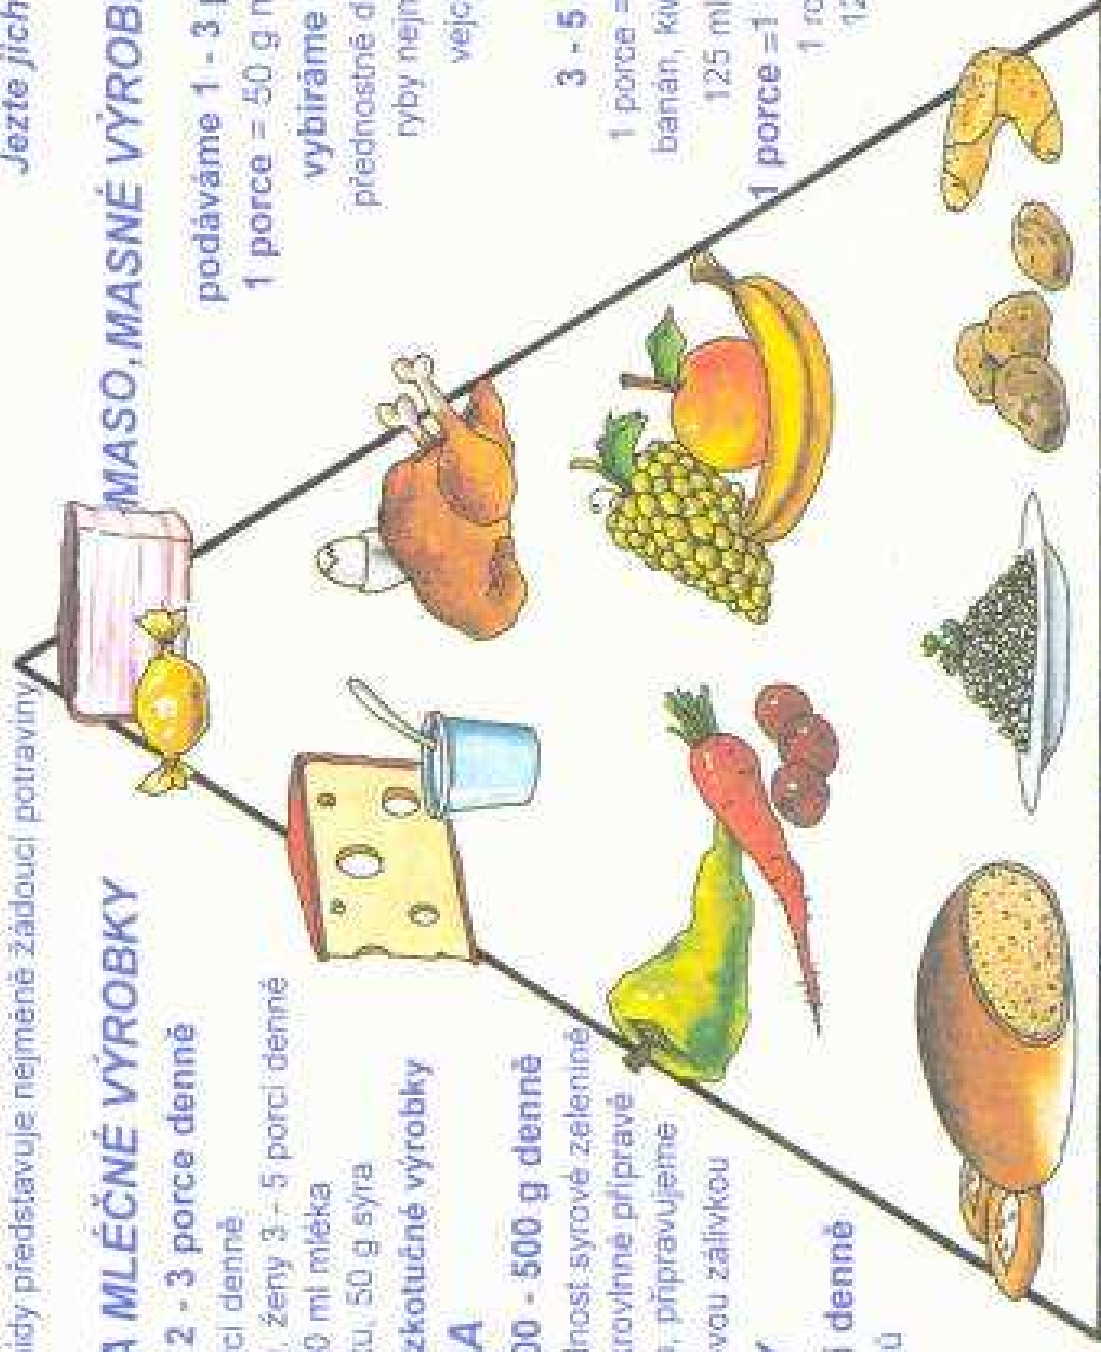 idy představuje nejméně žádoucí potraviny
Jezte jich
A MLÉČNÉ VÝROBKY
2 - 3 porce denně
cí denně
, ženy 3 - 5 porcí denně
0 ml mléka
tu, 50 g sýra
zkotučné výrobky
A
00 - 500 g denně
nost syrové zelenině
rovinné přípravě
, připravujeme
vou zálivkou
denně
ů
MASO, MASNÉ VÝROB
podáváme 1 - 3
1 porce = 50 g
vybíráme
přednostně d
ryby nejm
vejc
3 - 5
1 porce =
banán, kiw
125 ml
1 porce =1
1 ro
12